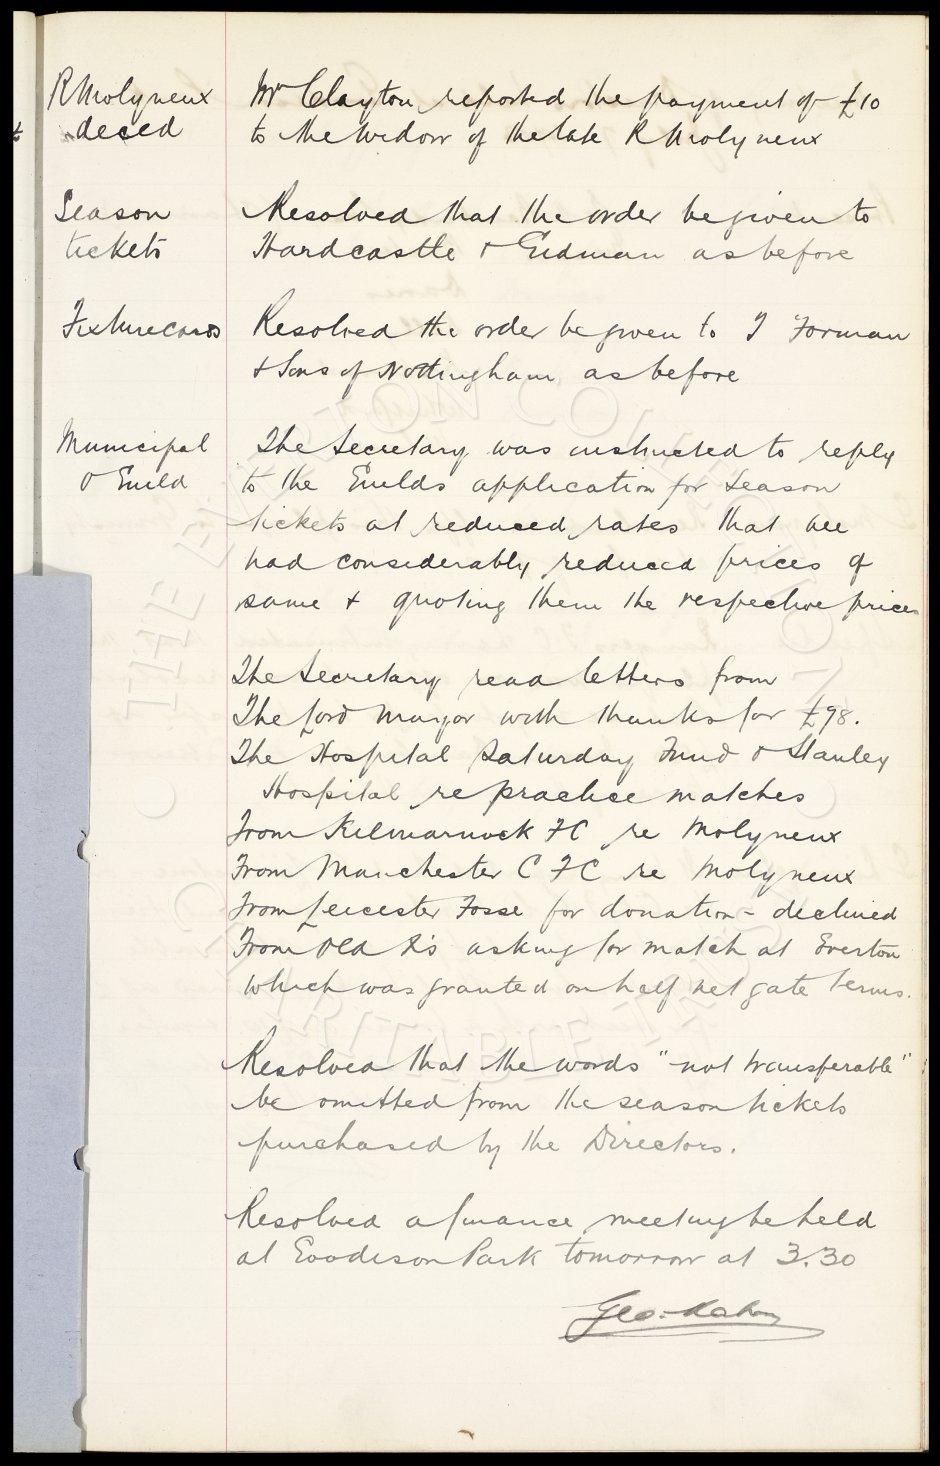 R Molyneux
deced
Mr Clayton reported the payment of £10
to the widow of the late R Molyneux
Season
tickets
Resolved that the order be given to
Hardcastle & Eidman as before
Fixture cards
Resolved the order be given to J Forman
& Sons of Nottingham as before
Municipal
O Guild
The Secretary was instructed to reply
to the Guilds application for Season
tickets at reduced rates that we
had considerably reduced prices of
same & quoting them the respective prices
The Secretary read letters from
The Lord Mayor with thanks for £98.
The Hospital Saturday Fund & Stanley
Hospital re practice matches
From Kilmarnock FC re Molyneux
From Manchester C FC re Molyneux
From Leicester Fosse for donation - declined
From Old X's asking for match at Everton
which was granted on half net gate terms.
Resolved that the words "not transferable"
be omitted from the season tickets
purchased by the Directors.
Resolved a finance meeting be held
at Goodison Park tomorrow at 3.30
Geo. Mahon
THE EVERTON COLLECTION
CHARITABLE TRUST